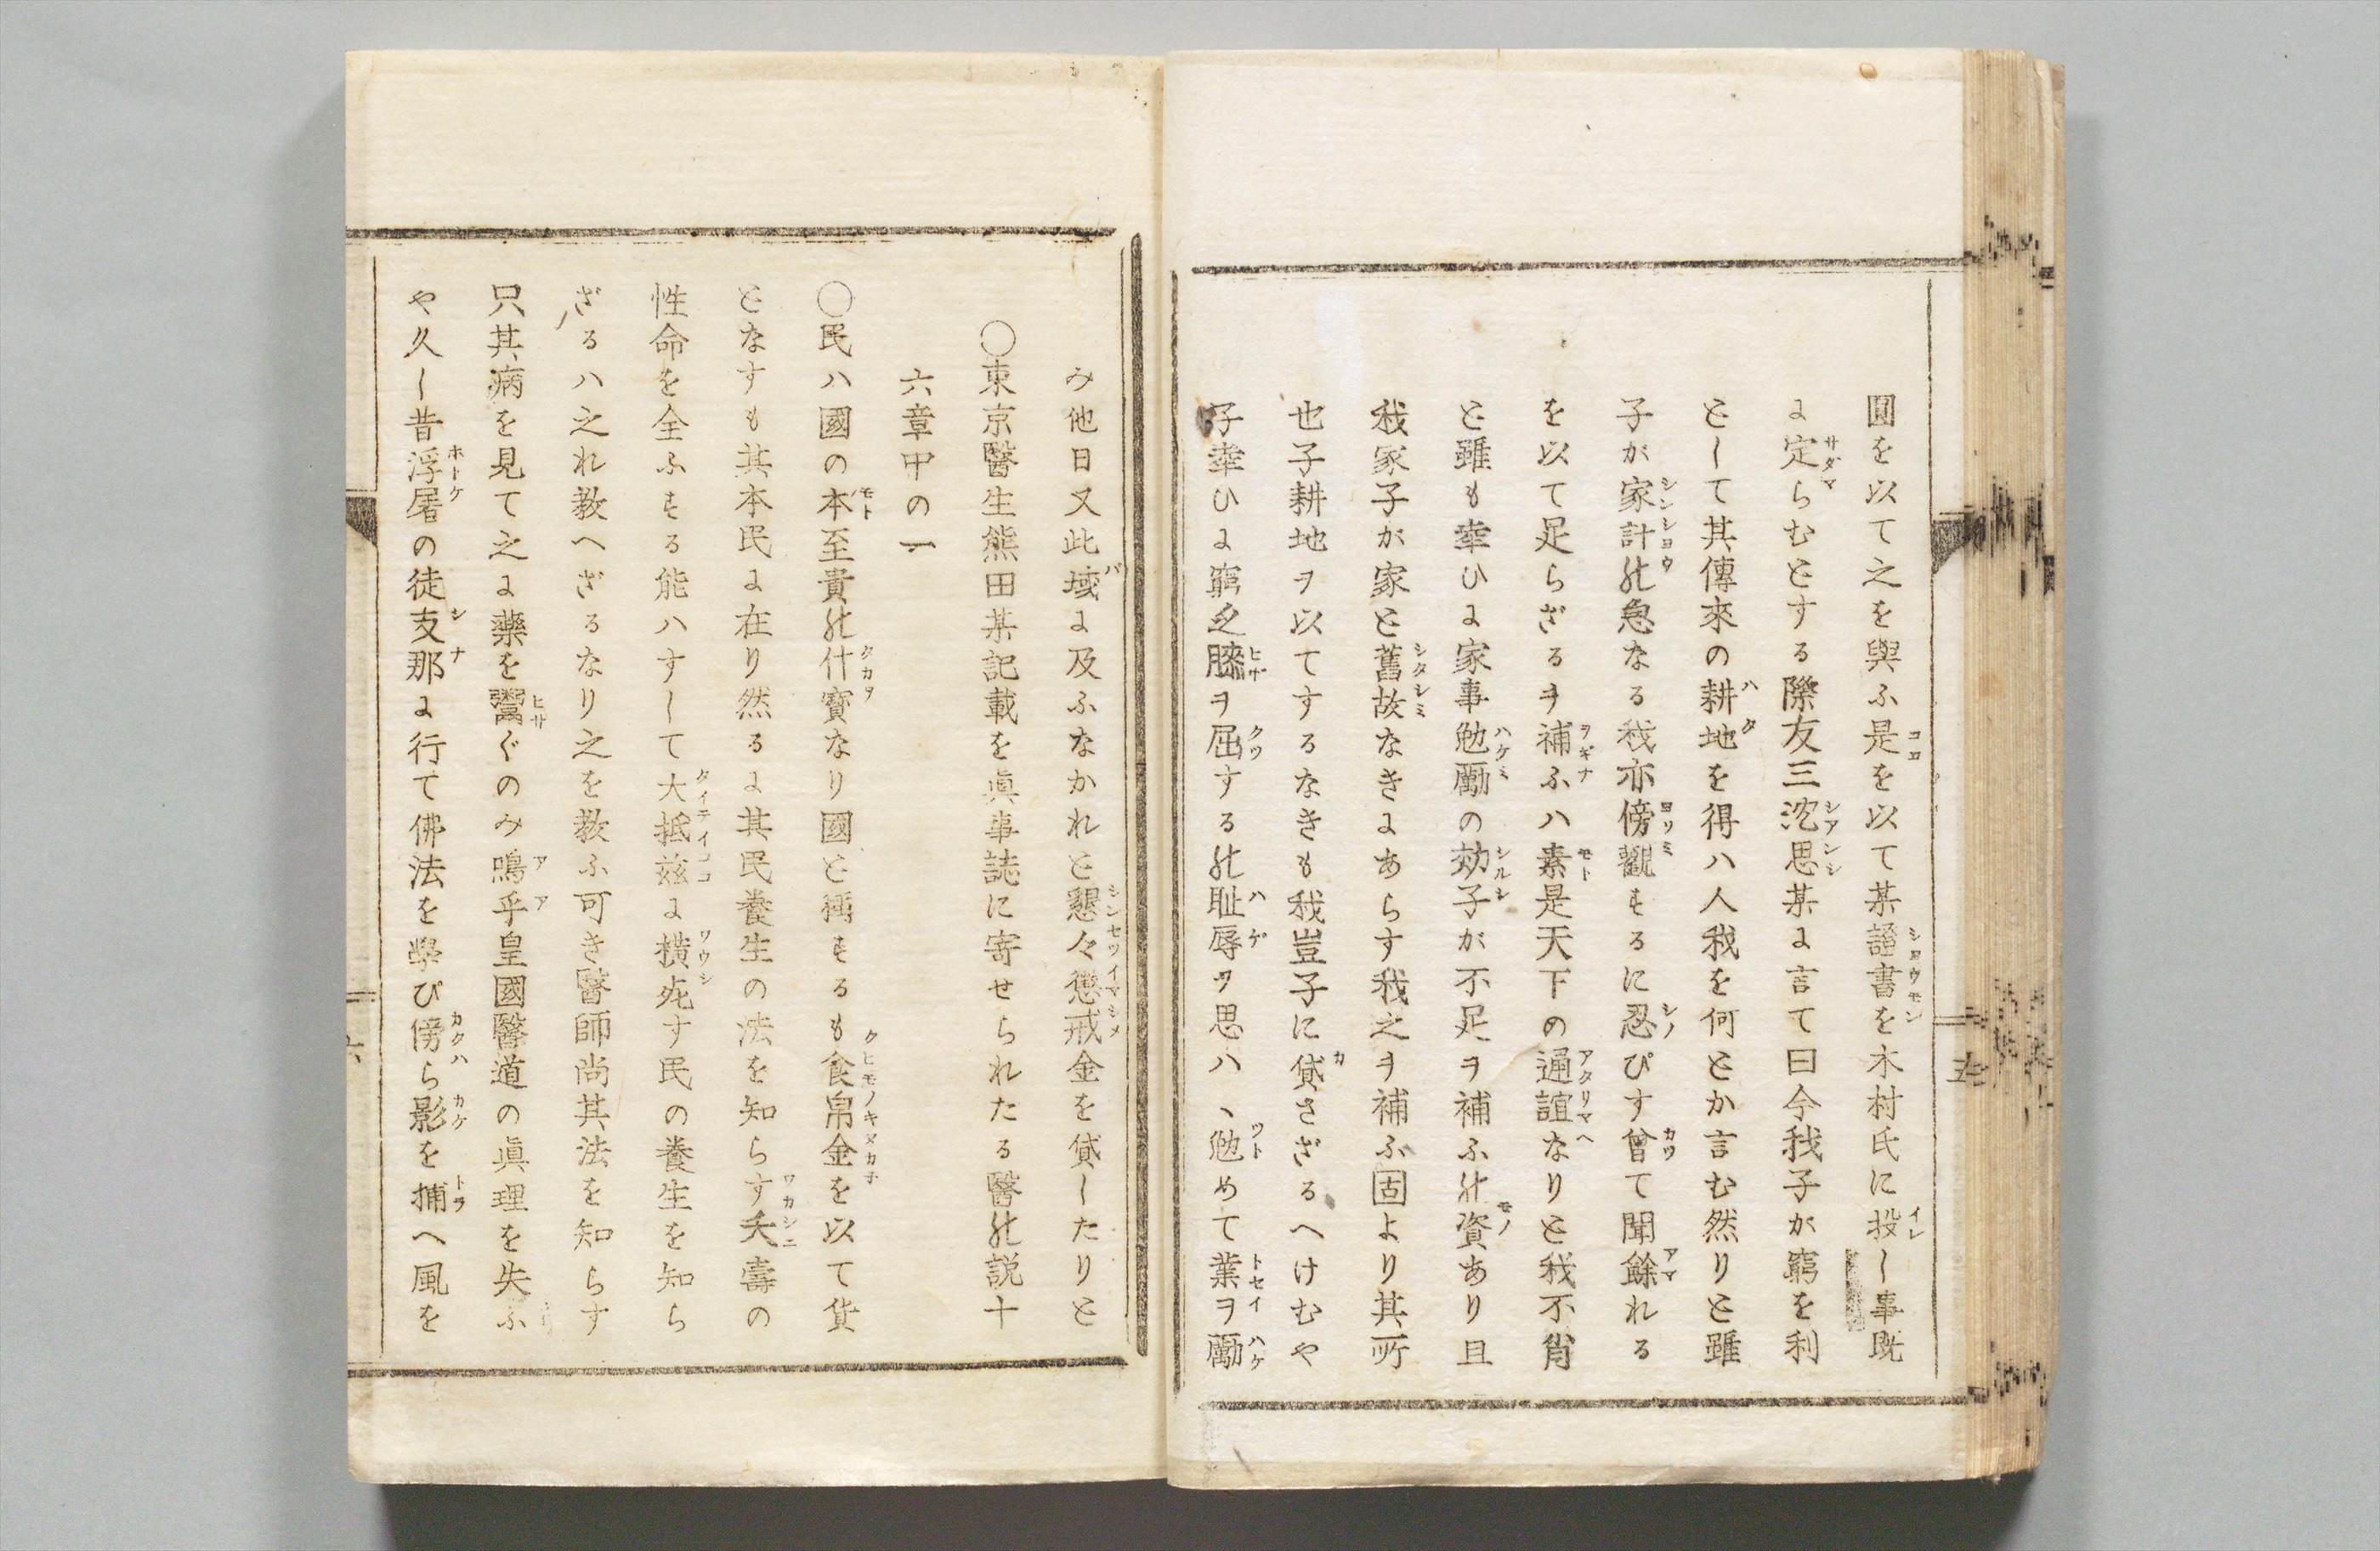 圓を以て之を與ふ是を以て某證書を木村氏に投し事既
に定らむとする際友三沈思某に言て曰今我子が窮を利
として其傳來の耕地を得ハ人我を何とか言む然りと雖
子が家計の急なる我亦傍觀するに忍びす曾て聞餘れる
を以て足らざるヲ補ふハ素是天下の通誼なりと我不肖
と雖も幸ひに家事勉勵の効子が不足ヲ補ふの資あり且
我家子が家と舊故なきにあらす我之ヲ補ふ固より其所
也子耕地ヲ以てするなきも我豈子に貸さざるへけむや
子幸ひに窮乏膝ヲ屈する の耻辱ヲ思ハヽ勉めて業ヲ勵
五
み他日又此域に及ふなかれと懇々懲戒金を貸したりと
〇東京醫生熊田某記載を眞事誌に寄せられたる醫の説十
六章中の一
〇民ハ國の本至貴の什寶なり國と稱するも食帛金を以て貨
となすも其本民に在り然るに其民養生の法を知らす夭壽の
性命を全ふする能ハすして大抵玆に横死す民の養生を知ら
ざるハ之れ教へざるなり之を教ふ可き醫師尚其法を知らす
只其病を見て之に藥を鬻ぐのみ嗚乎皇國醫道の眞理を失ふ
や久し昔浮屠の徒支那に行て佛法を學び傍ら影を捕へ風を
六